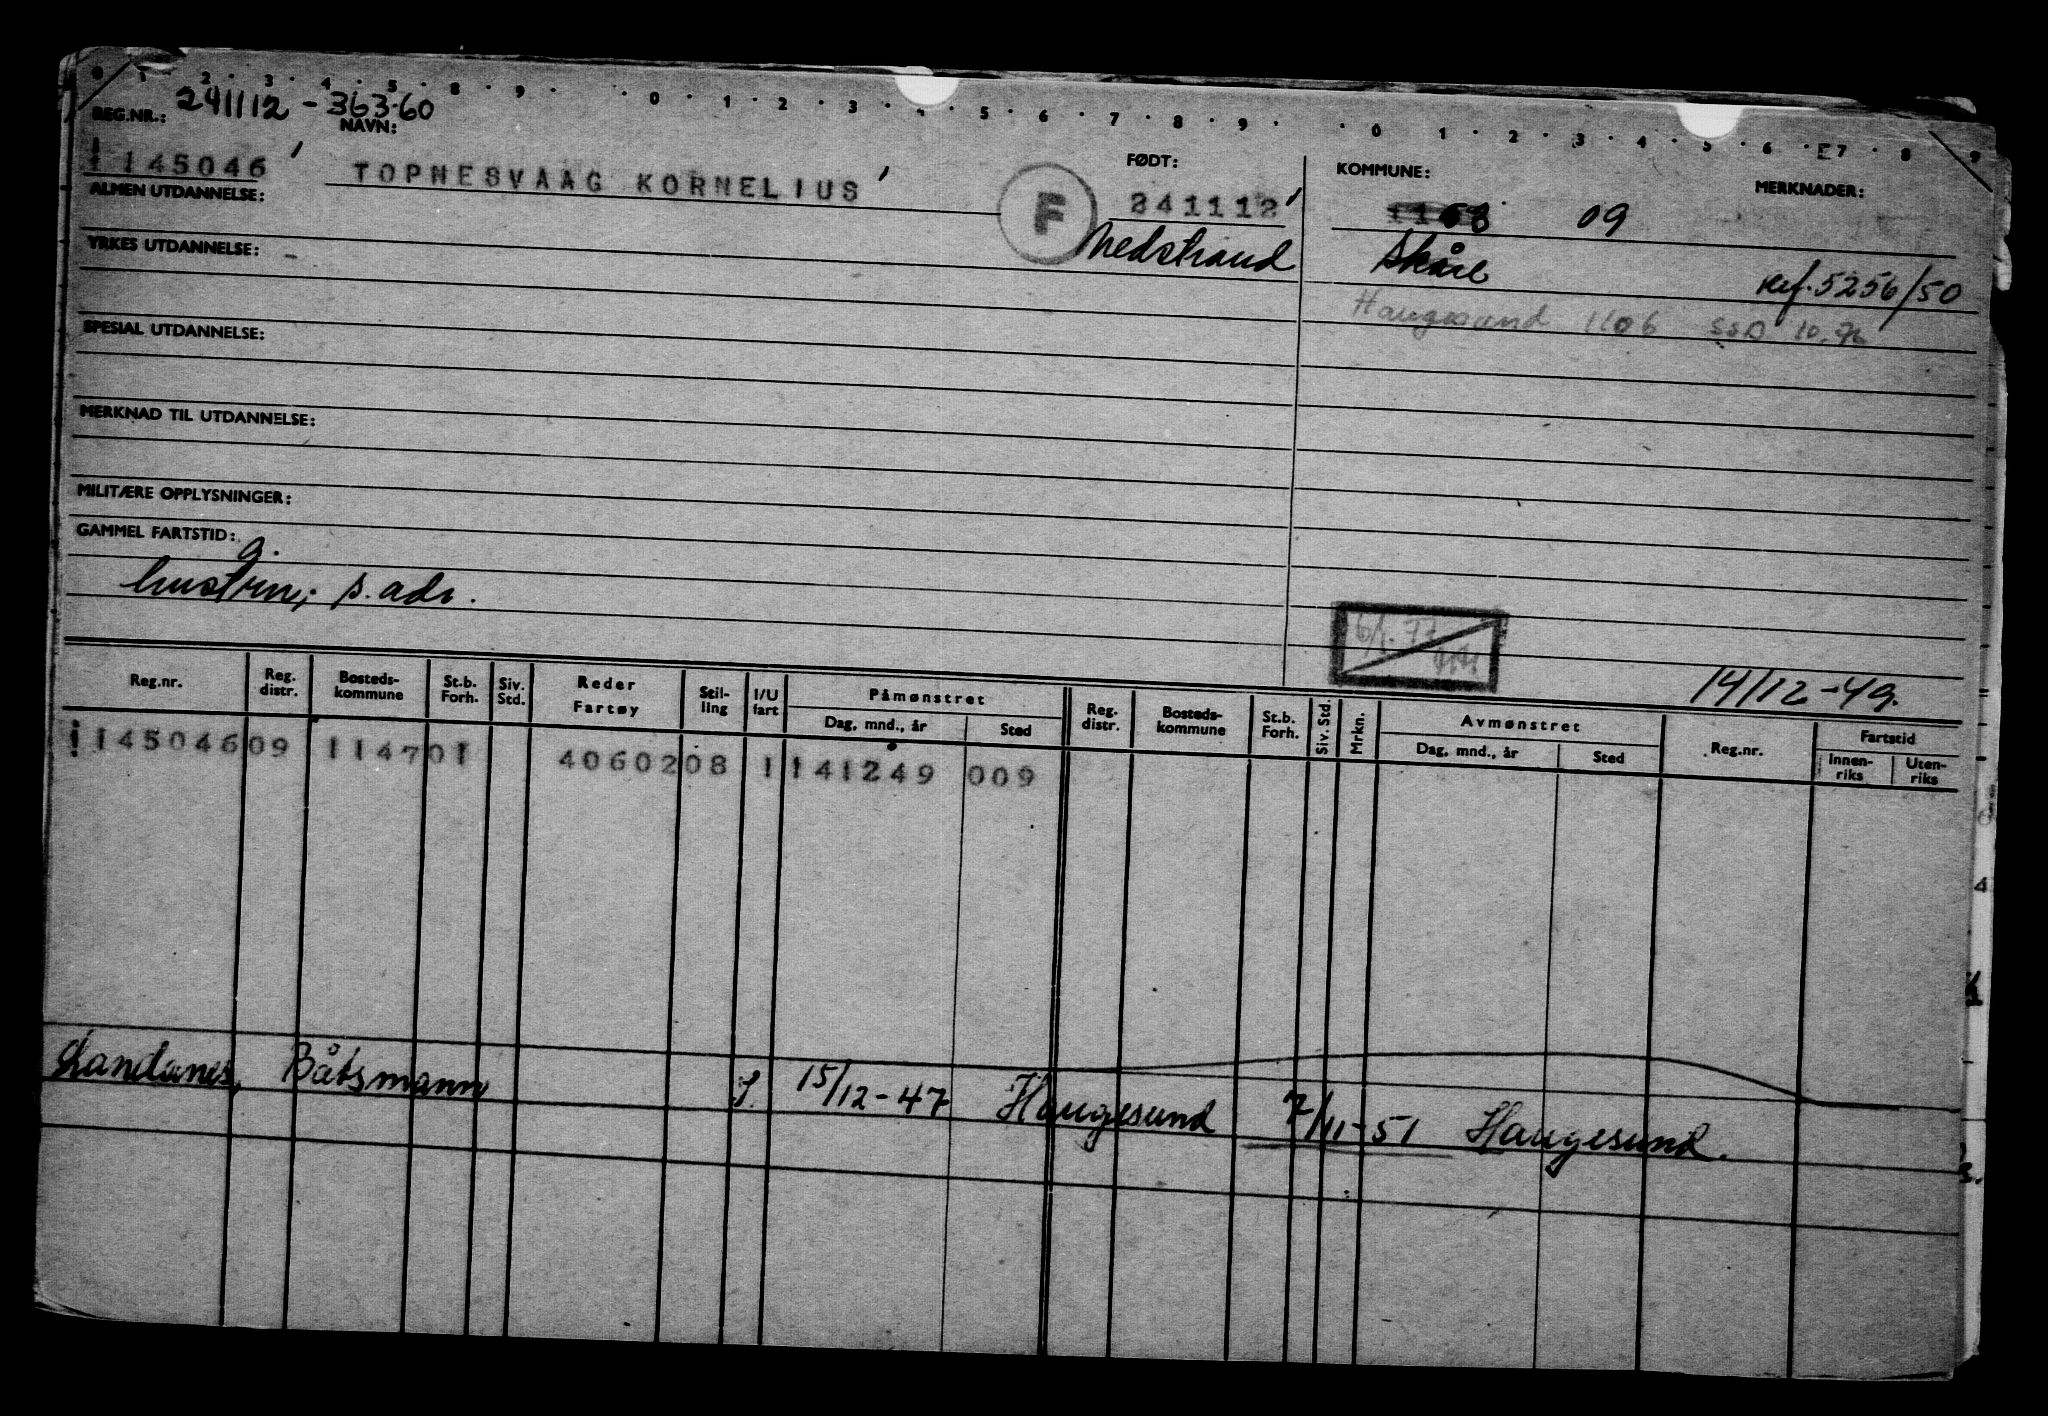 0 · 1 · 2 · 3 · 4 · 5 · 8 · 9 · · 0 · 1 · 2 · 3 · 4 · 5 · 6 · 7 · 8 · 9 · · 0 · 1 · 2 · 3 · 4 · 5 · 6 · E7 · 8 · 9
241112 - 363.60
REG.NR.: NAVN: FØDT: KOMMUNE: MERKNADER:
1145046 TOPNESVAAG KORNELIUS F 241112 09
ALMEN UTDANNELSE:
Nedstrand Skåre Ref. 5256/50
YRKES UTDANNELSE:
Haugesund 1106 SSD 10.76
SPESIAL UTDANNELSE:
MERKNAD TIL UTDANNELSE:
MILITÆRE OPPLYSNINGER:
GAMMEL FARTSTID:
g.
hustru; s. adr.
6/1. 77
14/12-49.
Reg.nr. Reg. distr. Bosteds-kommune St.b. Forh. Siv. Std. Reder Fartøy Stil-ling I/U fart Påmønstret Dag, mnd., år Sted Reg. distr. Bosteds-kommune St.b. Forh. Siv. Std. Mrkn. Avmønstret Dag, mnd., år Sted Reg.nr. Fartstid Innen-riks Uten-riks
1145046 09 1147 01 406020 8 1 141249 009
Sandanes, Båtsmann J. 15/12-47 Haugesund 7/11-51 Haugesund.